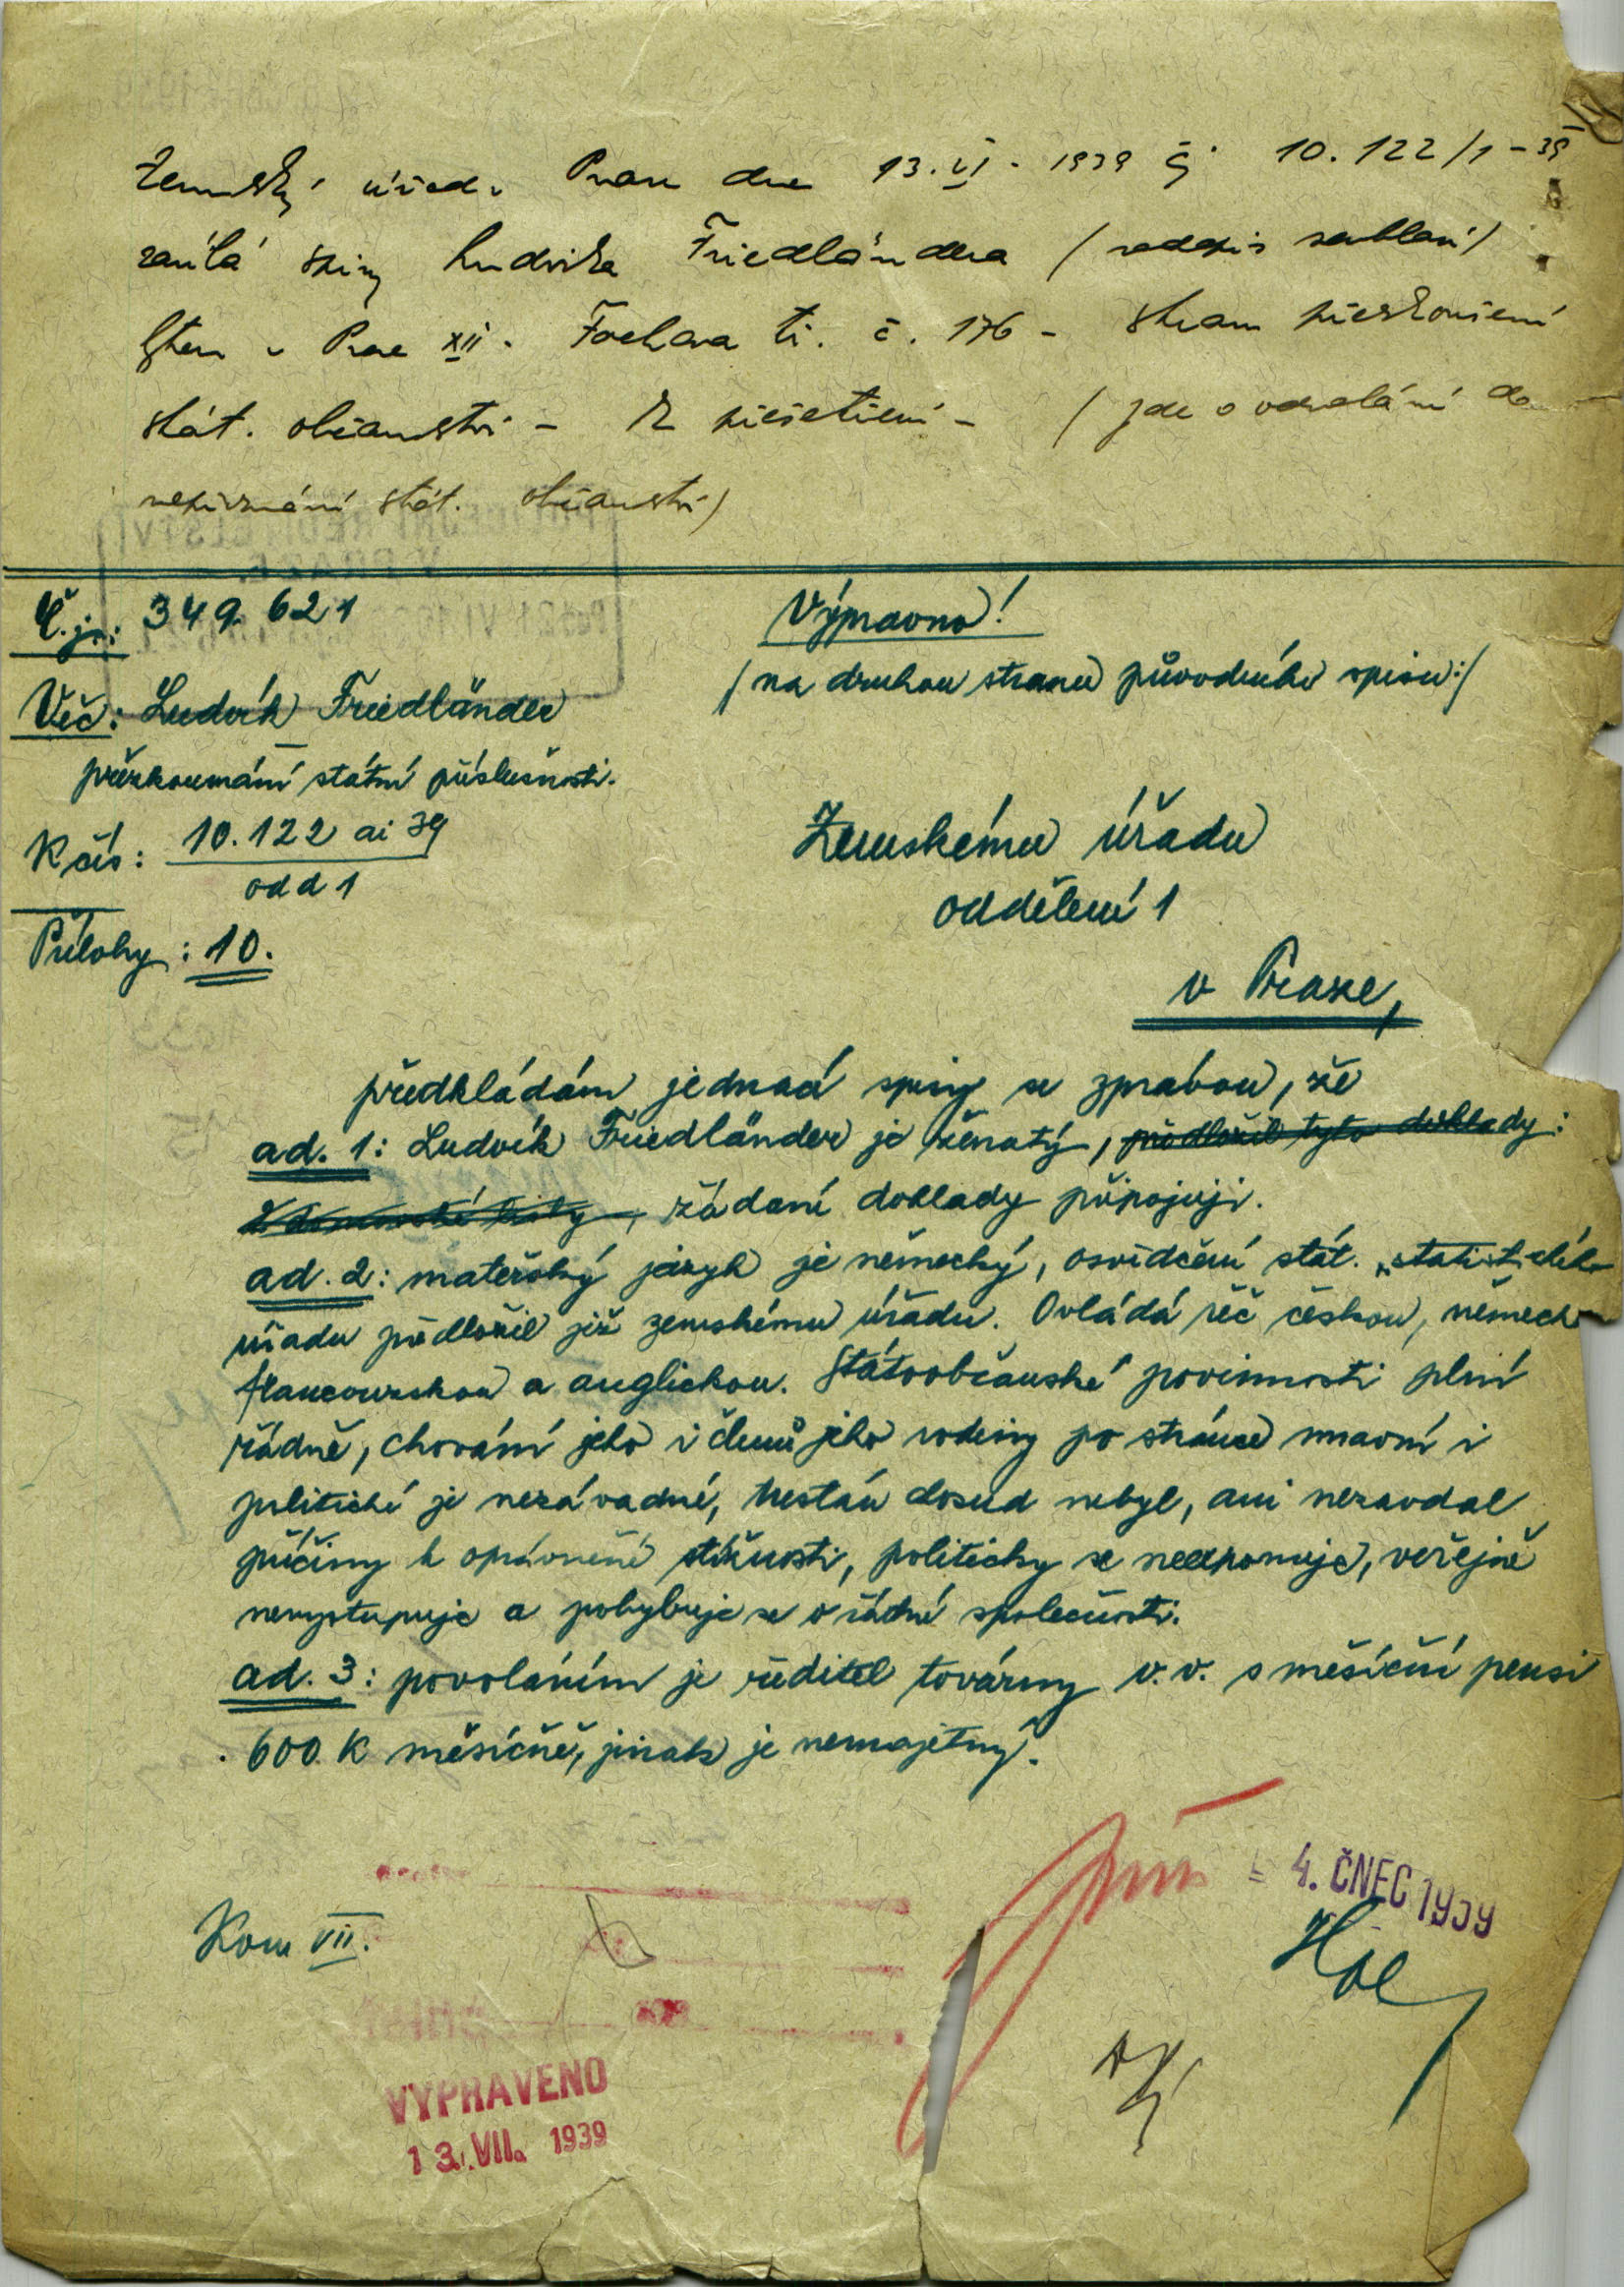 Zemský úřad v Praze dne 13.VI. 1939 čj 10.122/1-39
zasílá spisy Ludvíka Friedländera
bytem v Praze XII. Fochova tř. č. 176 - stran přezkoušení
stát. občanství - k přešetření - (jde o odvolání do
nepřiznání stát. občanství)
Č.j.: 349.621
Výpravno!
/na druhou stranu původního spisu:/
Věc: Ludvík Friedländer
přezkoumání státní příslušnosti.
K čís: 10.122 ai 39
odd 1
Přílohy: 10.
Zemskému úřadu
oddělení 1
v Praze,
předkládám jednací spisy se zprávou, že
ad. 1: Ludvík Friedländer je ženatý, předložil tyto doklady:
žádané doklady připojuji.
ad. 2: mateřský jazyk je německý, osvědčení stát. statistického
úřadu předložil již zemskému úřadu. Ovládá řeč českou, německ
francouzskou a anglickou. Státoobčanské povinnosti plní
řádně, chování jeho i členů jeho rodiny po stránce mravní i
politické je nezávadné, trestán dosud nebyl, ani nezavdal
příčiny k oprávněné stížnosti, politicky se neexponuje, veřejně
nevystupuje a pohybuje se v řádné společnosti.
ad. 3: povoláním je ředitel továrny v.v. s měsíční pensí
600 K měsíčně, jinak je nemajetný.
- 4. ČNEC 1939
Kom VII.
VYPRAVENO
13. VII. 1939